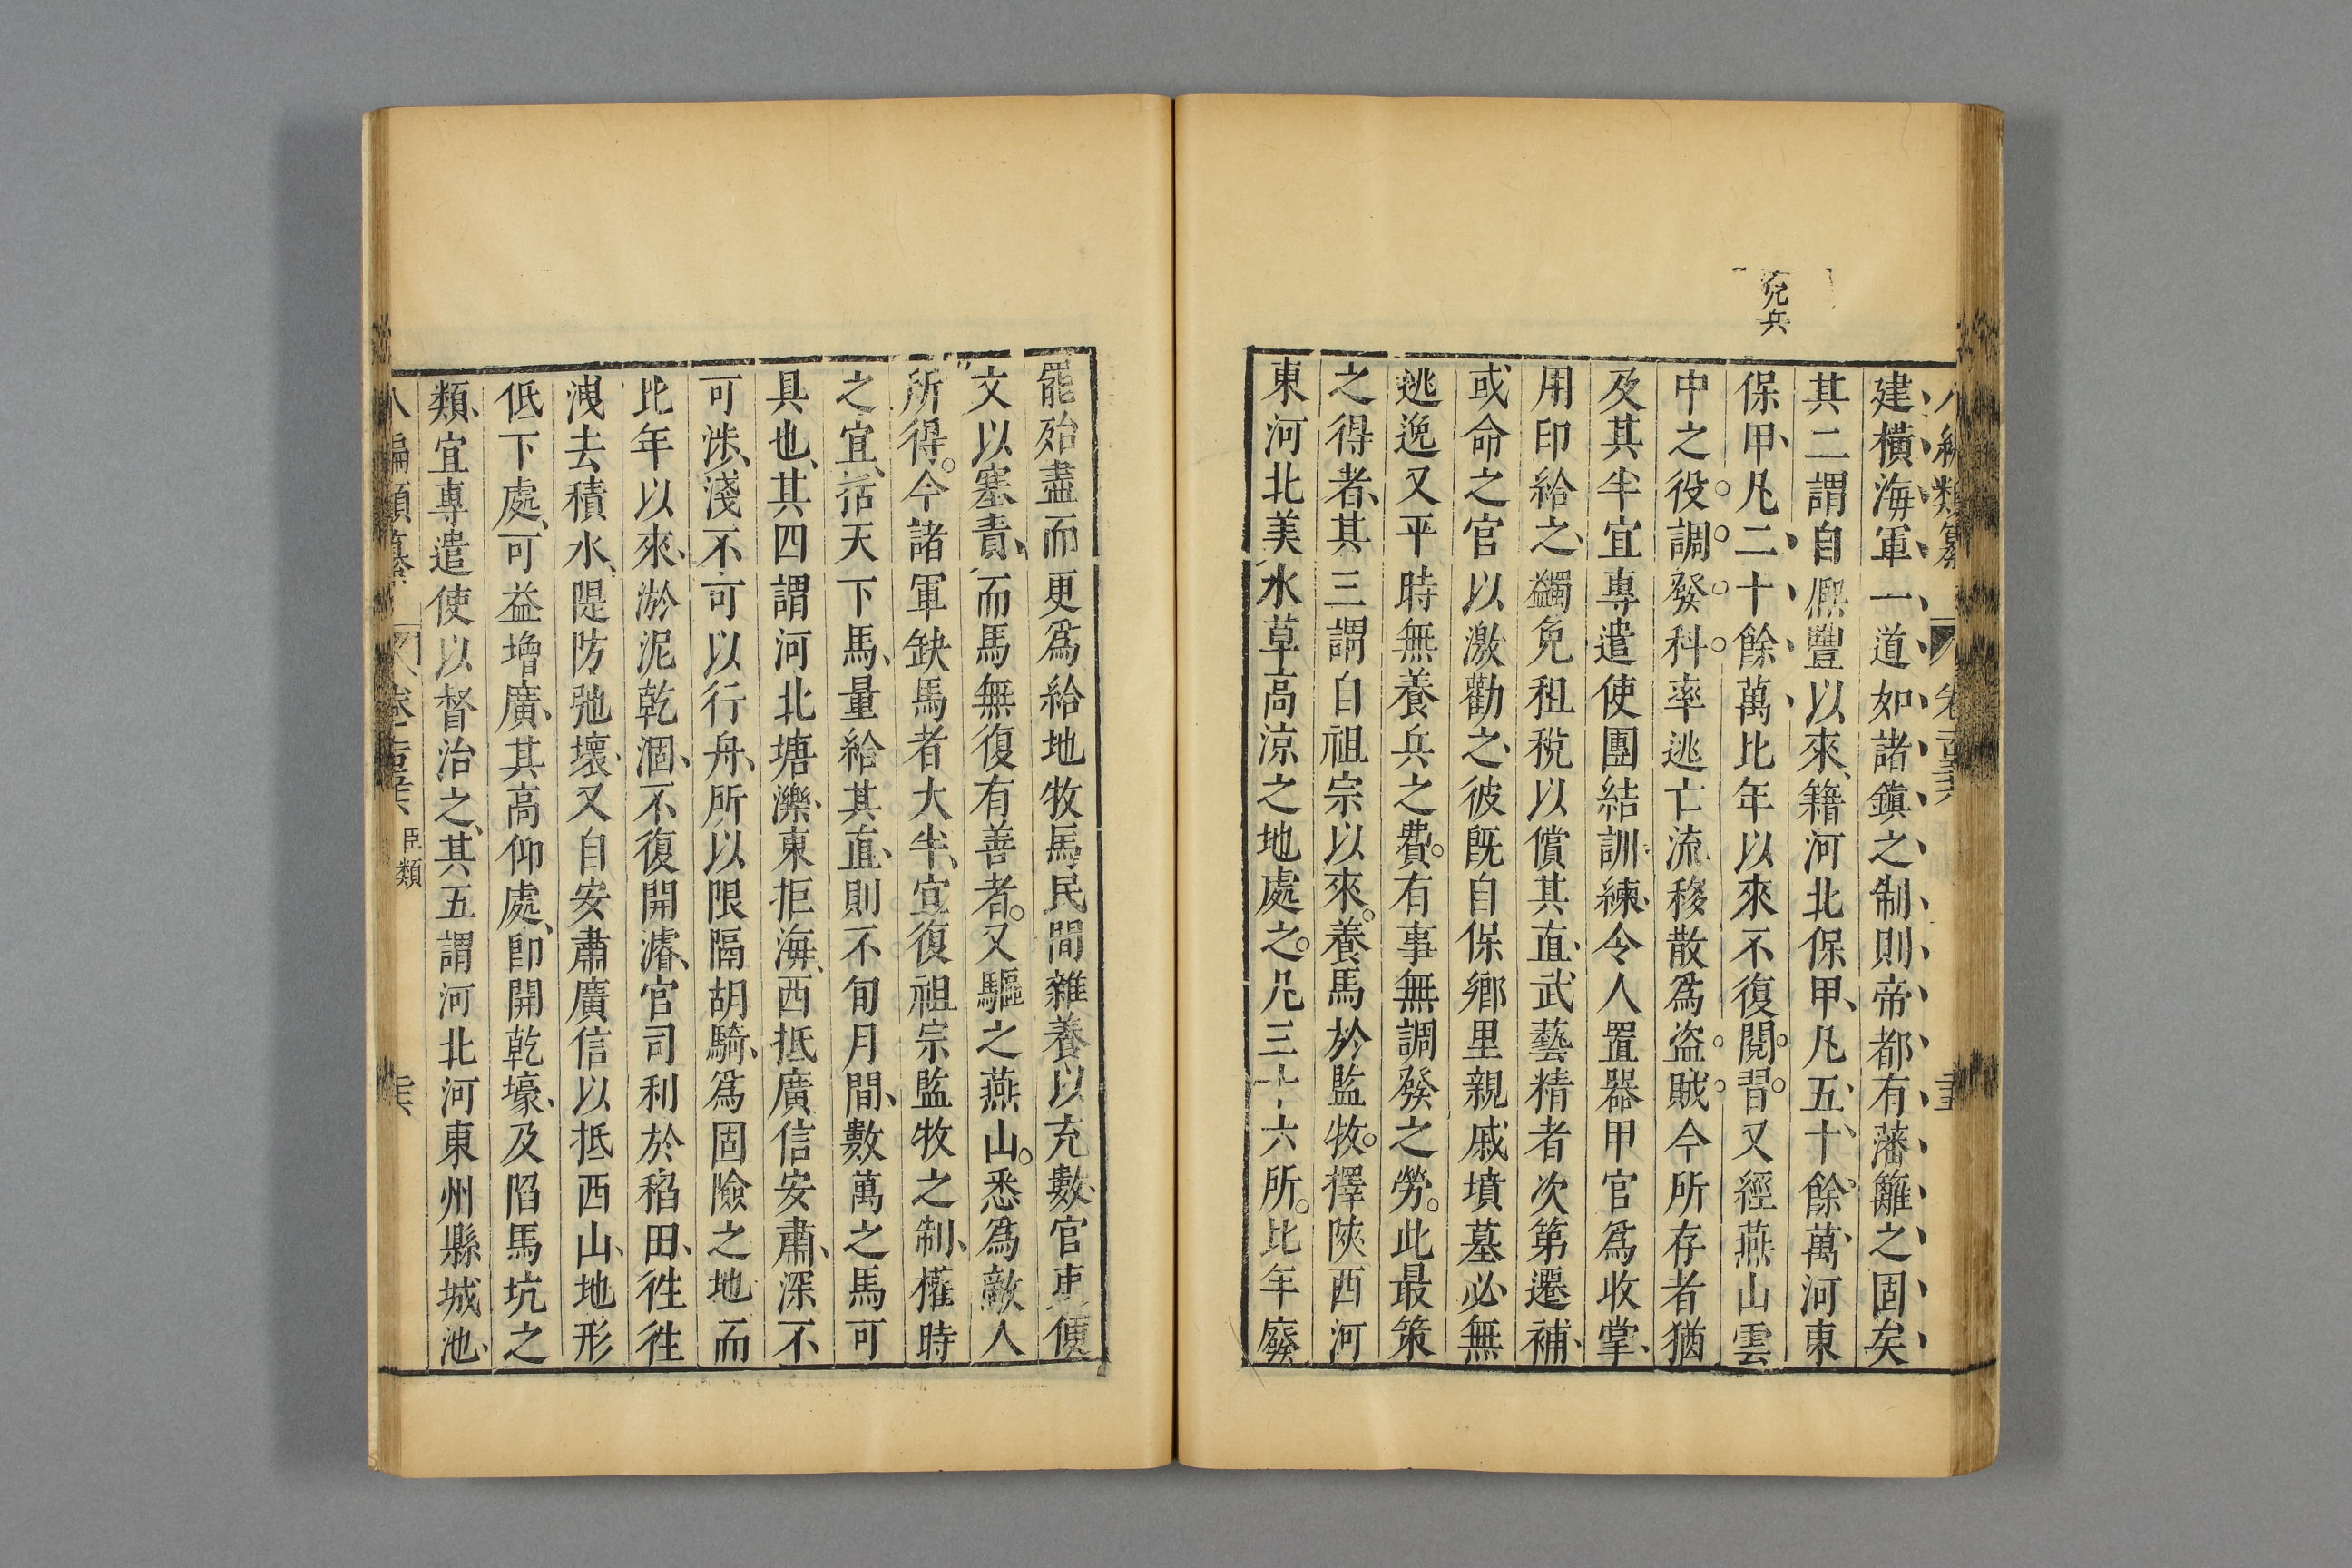 兵
八編類纂
建橫海軍一道如諸鎮之制則帝都有藩籬之固矣
其二謂自熈豐以來籍河北保甲凡五十餘萬河東
保甲凡二十餘萬比年以來不復閱習又經燕山雲
中之役調發科率逃亡流移散為盜賊今所存者猶
及其半宜專遣使團結訓練令人置器甲官為收掌
用印給之蠲免租稅以償其直武藝精者次第遷補
或命之官以激勸之彼既自保鄉里親戚墳墓必無
逃逸又平時無養兵之費有事無調發之勞此最策
之得者其三謂自祖宗以來養馬於監牧擇陝西河
東河北美水草高涼之地處之凡三十六所比年廢
罷殆盡而更爲給地牧馬民間雜養以充數官吏便
文以塞責而馬無復有善者又驅之燕山悉爲敵人
所得今諸軍缺馬者大半宜復祖宗監牧之制權時
之宜括天下馬量給其直則不旬月間數萬之馬可
具也其四謂河北塘濼東拒海西抵廣信安肅深不
可涉淺不可以行舟所以限隔胡騎爲固險之地而
比年以來淤泥乾涸不復開濬官司利於稻田徃徃
洩去積水隄防弛壞又自安肅廣信以抵西山地形
低下處可益增廣其高仰處卽開乾壕及陷馬坑之
類宜專遣使以督治之其五謂河北河東州縣城池
八編類纂 臣類